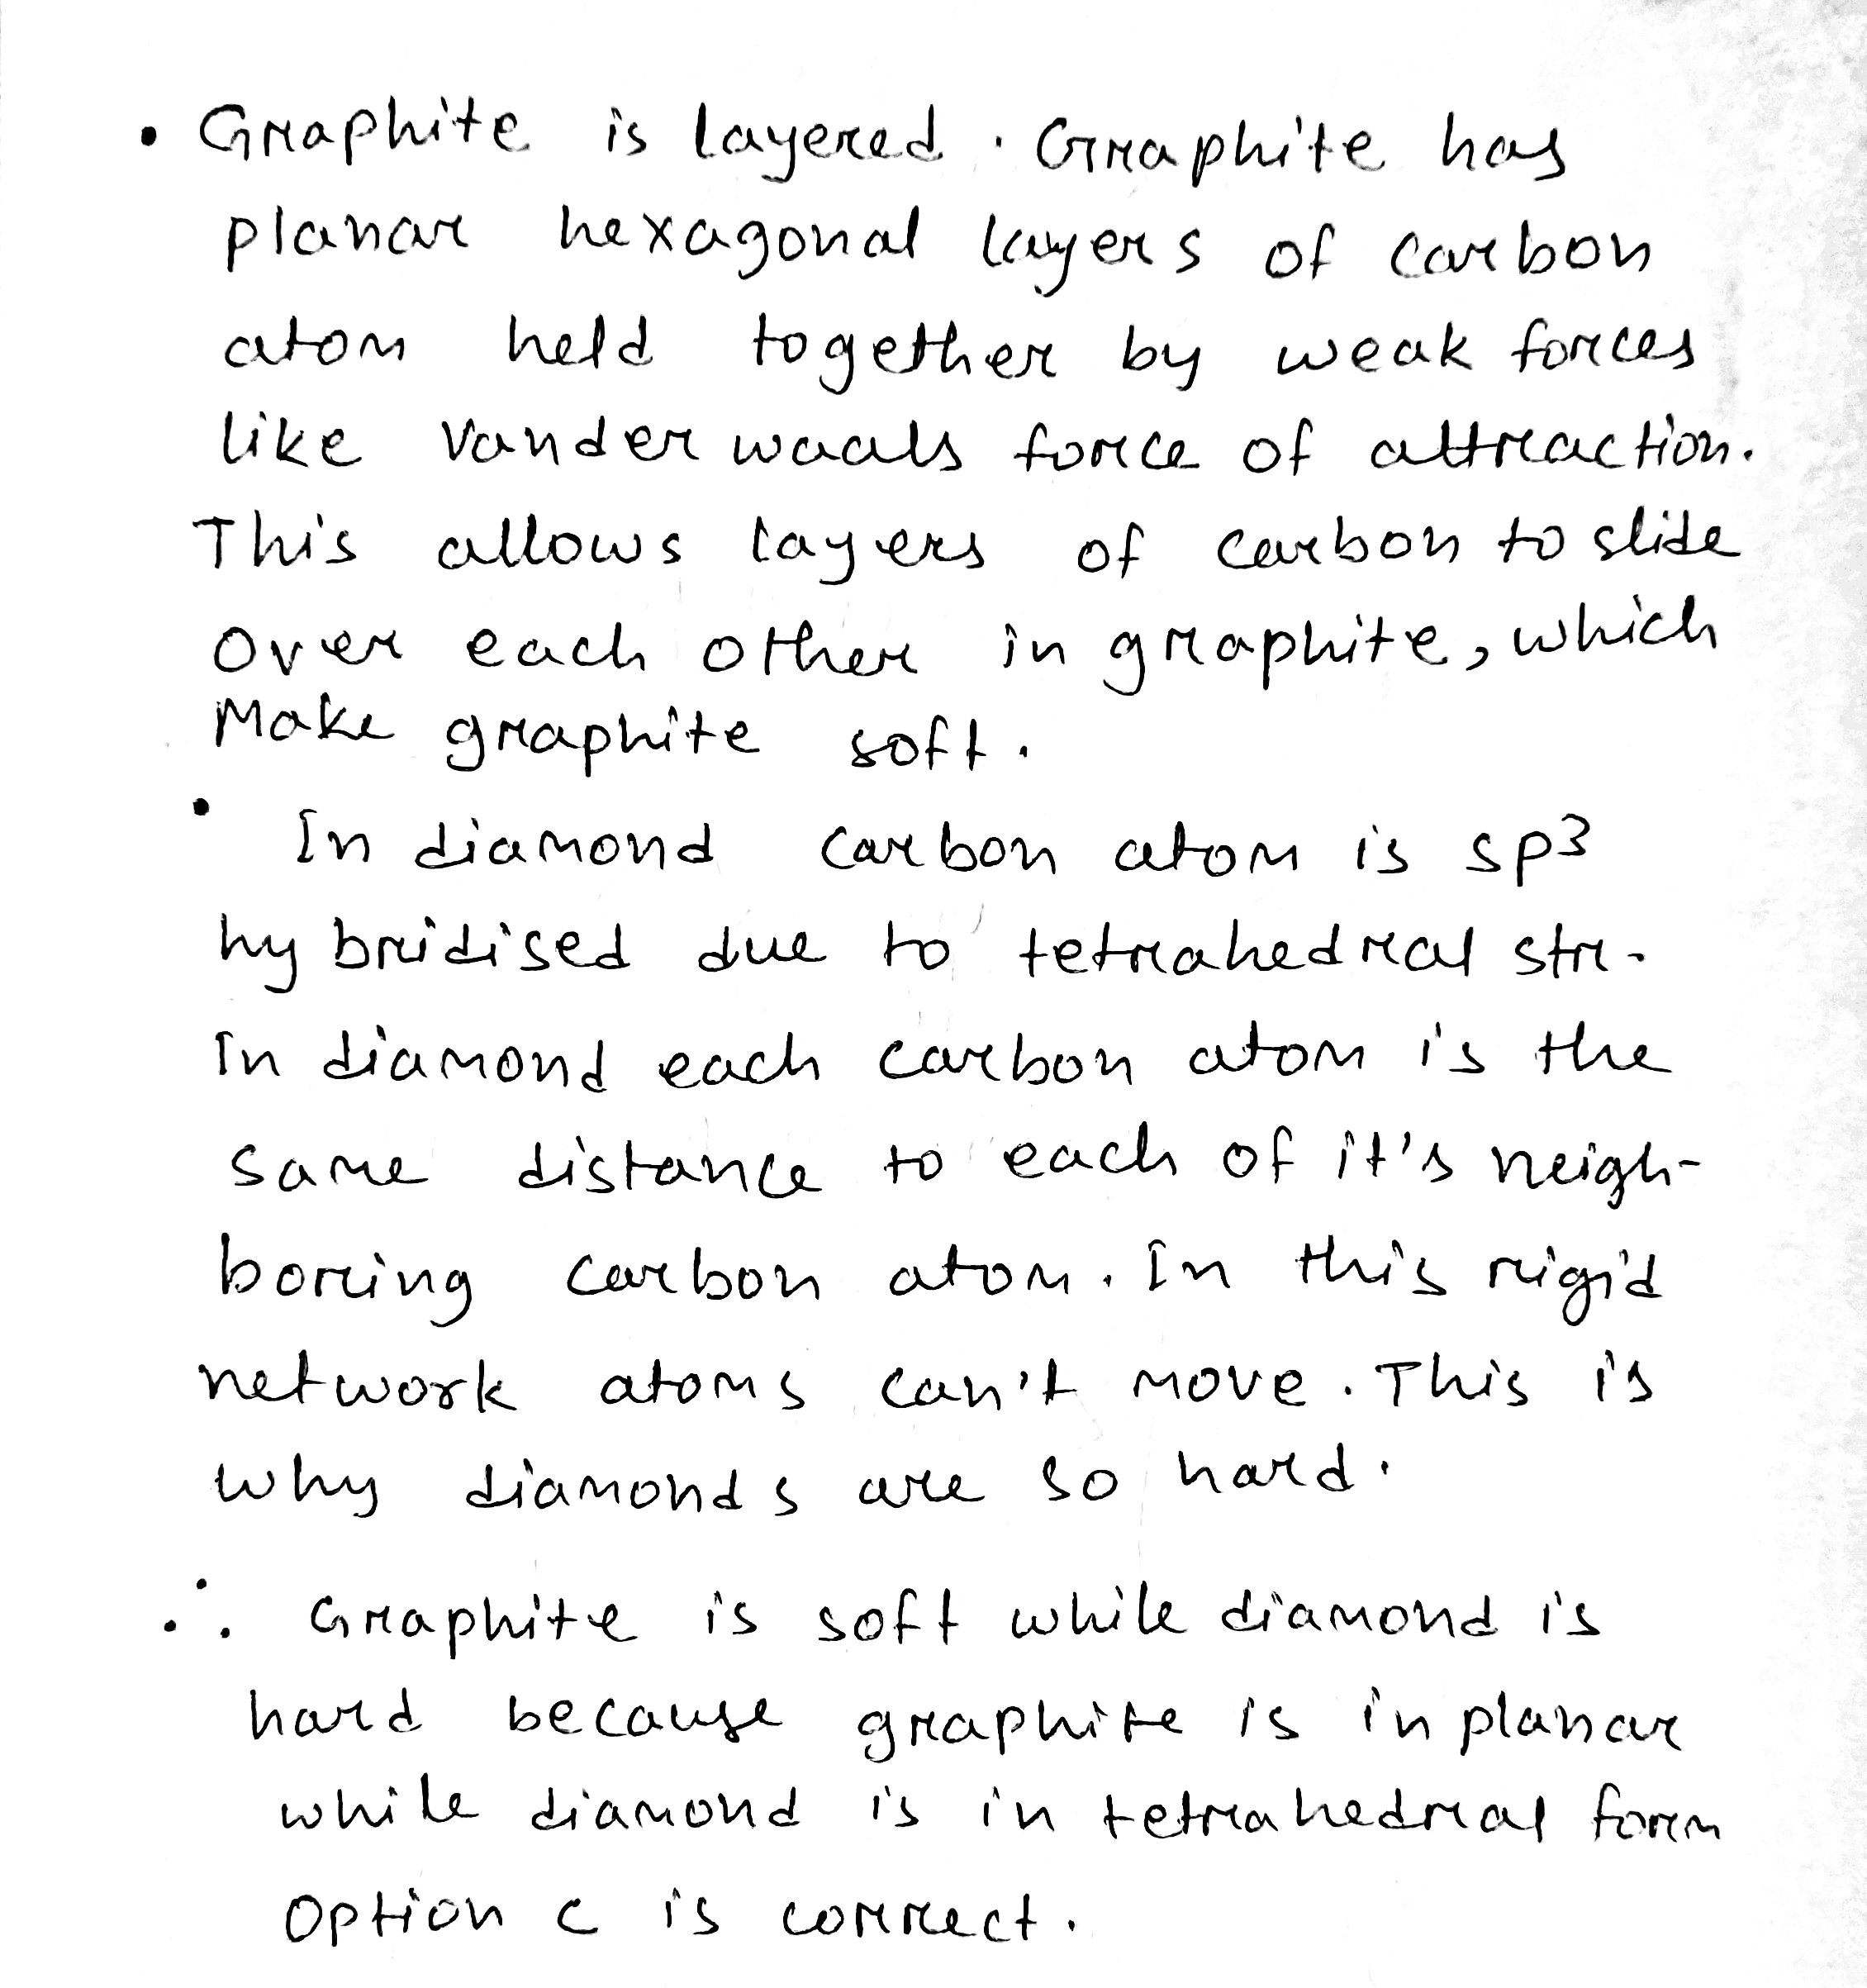 • Graphite is layered. Graphite has
planar hexagonal layers of carbon
atom held together by weak forces
like Vander waals force of attraction.
This allows layers of carbon to slide
over each other in graphite, which
Make graphite soft.
• In diamond carbon atom is sp3
hybridised due to tetrahedral str.
In diamond each carbon atom is the
same distance to each of it's neigh-
boring carbon atom. In this rigid
network atoms can't move. This is
why diamonds are so hard.
∴ Graphite is soft while diamond is
hard because graphite is in planar
while diamond is in tetrahedral form
Option c is correct.